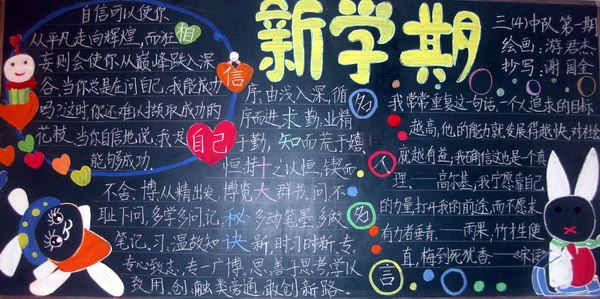 新学期
三(4)中队 第一期
绘画:游君杰
抄写:谢国全
相信自己
自信可以使你
从平凡走向辉煌,而狂
妄则会使你从巅峰跌入深
谷,当你总是在问自己,我能成功
吗?这时你还难以撷取成功的
花枝,当你自信地说,我
能够成功.
求知十大秘诀
序,由浅入深,循
序而进, 勤,业精
于勤, 而荒于嬉
恒,持之以恒,锲而
不舍、博,从精出发,博览群书、问,不
耻下问,多学多问、记,多动笔墨,多做
笔记、习,温故知新,时习时新、专,
专心致志,专一广博、思,善于思考,学以
致用、创,触类旁通,敢创新路.
名人言
我常常重复这句话:一个人追求的目标
越高,他的能力就发展得越快,对社会
就越有益,我确信这也是个真
理、——高尔基,我宁愿靠自己
的力量打开我的前途,而不愿求
有力者垂青、——雨果,竹材生便
直,梅到死犹香、